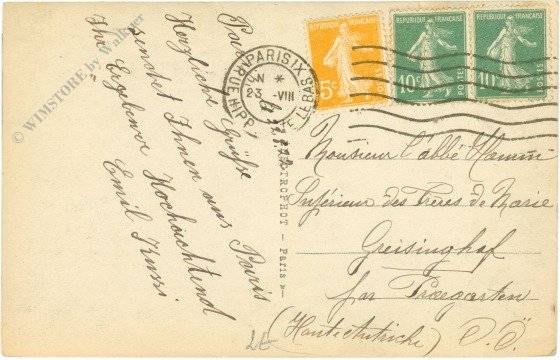 © WIMSTORE by Walkner
Herzliche Grüße
sendet Ihnen aus Paris
Ihr Ergebener Hochachtend
Emil
PARIS IX
23 VIII
RUE HIPPTE LEBAS
REPUBLIQUE FRANÇAISE
5c
REPUBLIQUE FRANÇAISE
10c
POSTES
REPUBLIQUE FRANÇAISE
10c
POSTES
Paris
Monsieur l'abbé
Supérieur des Frères de Marie
Greisinghof
par Pragarten
(Haute Autriche)